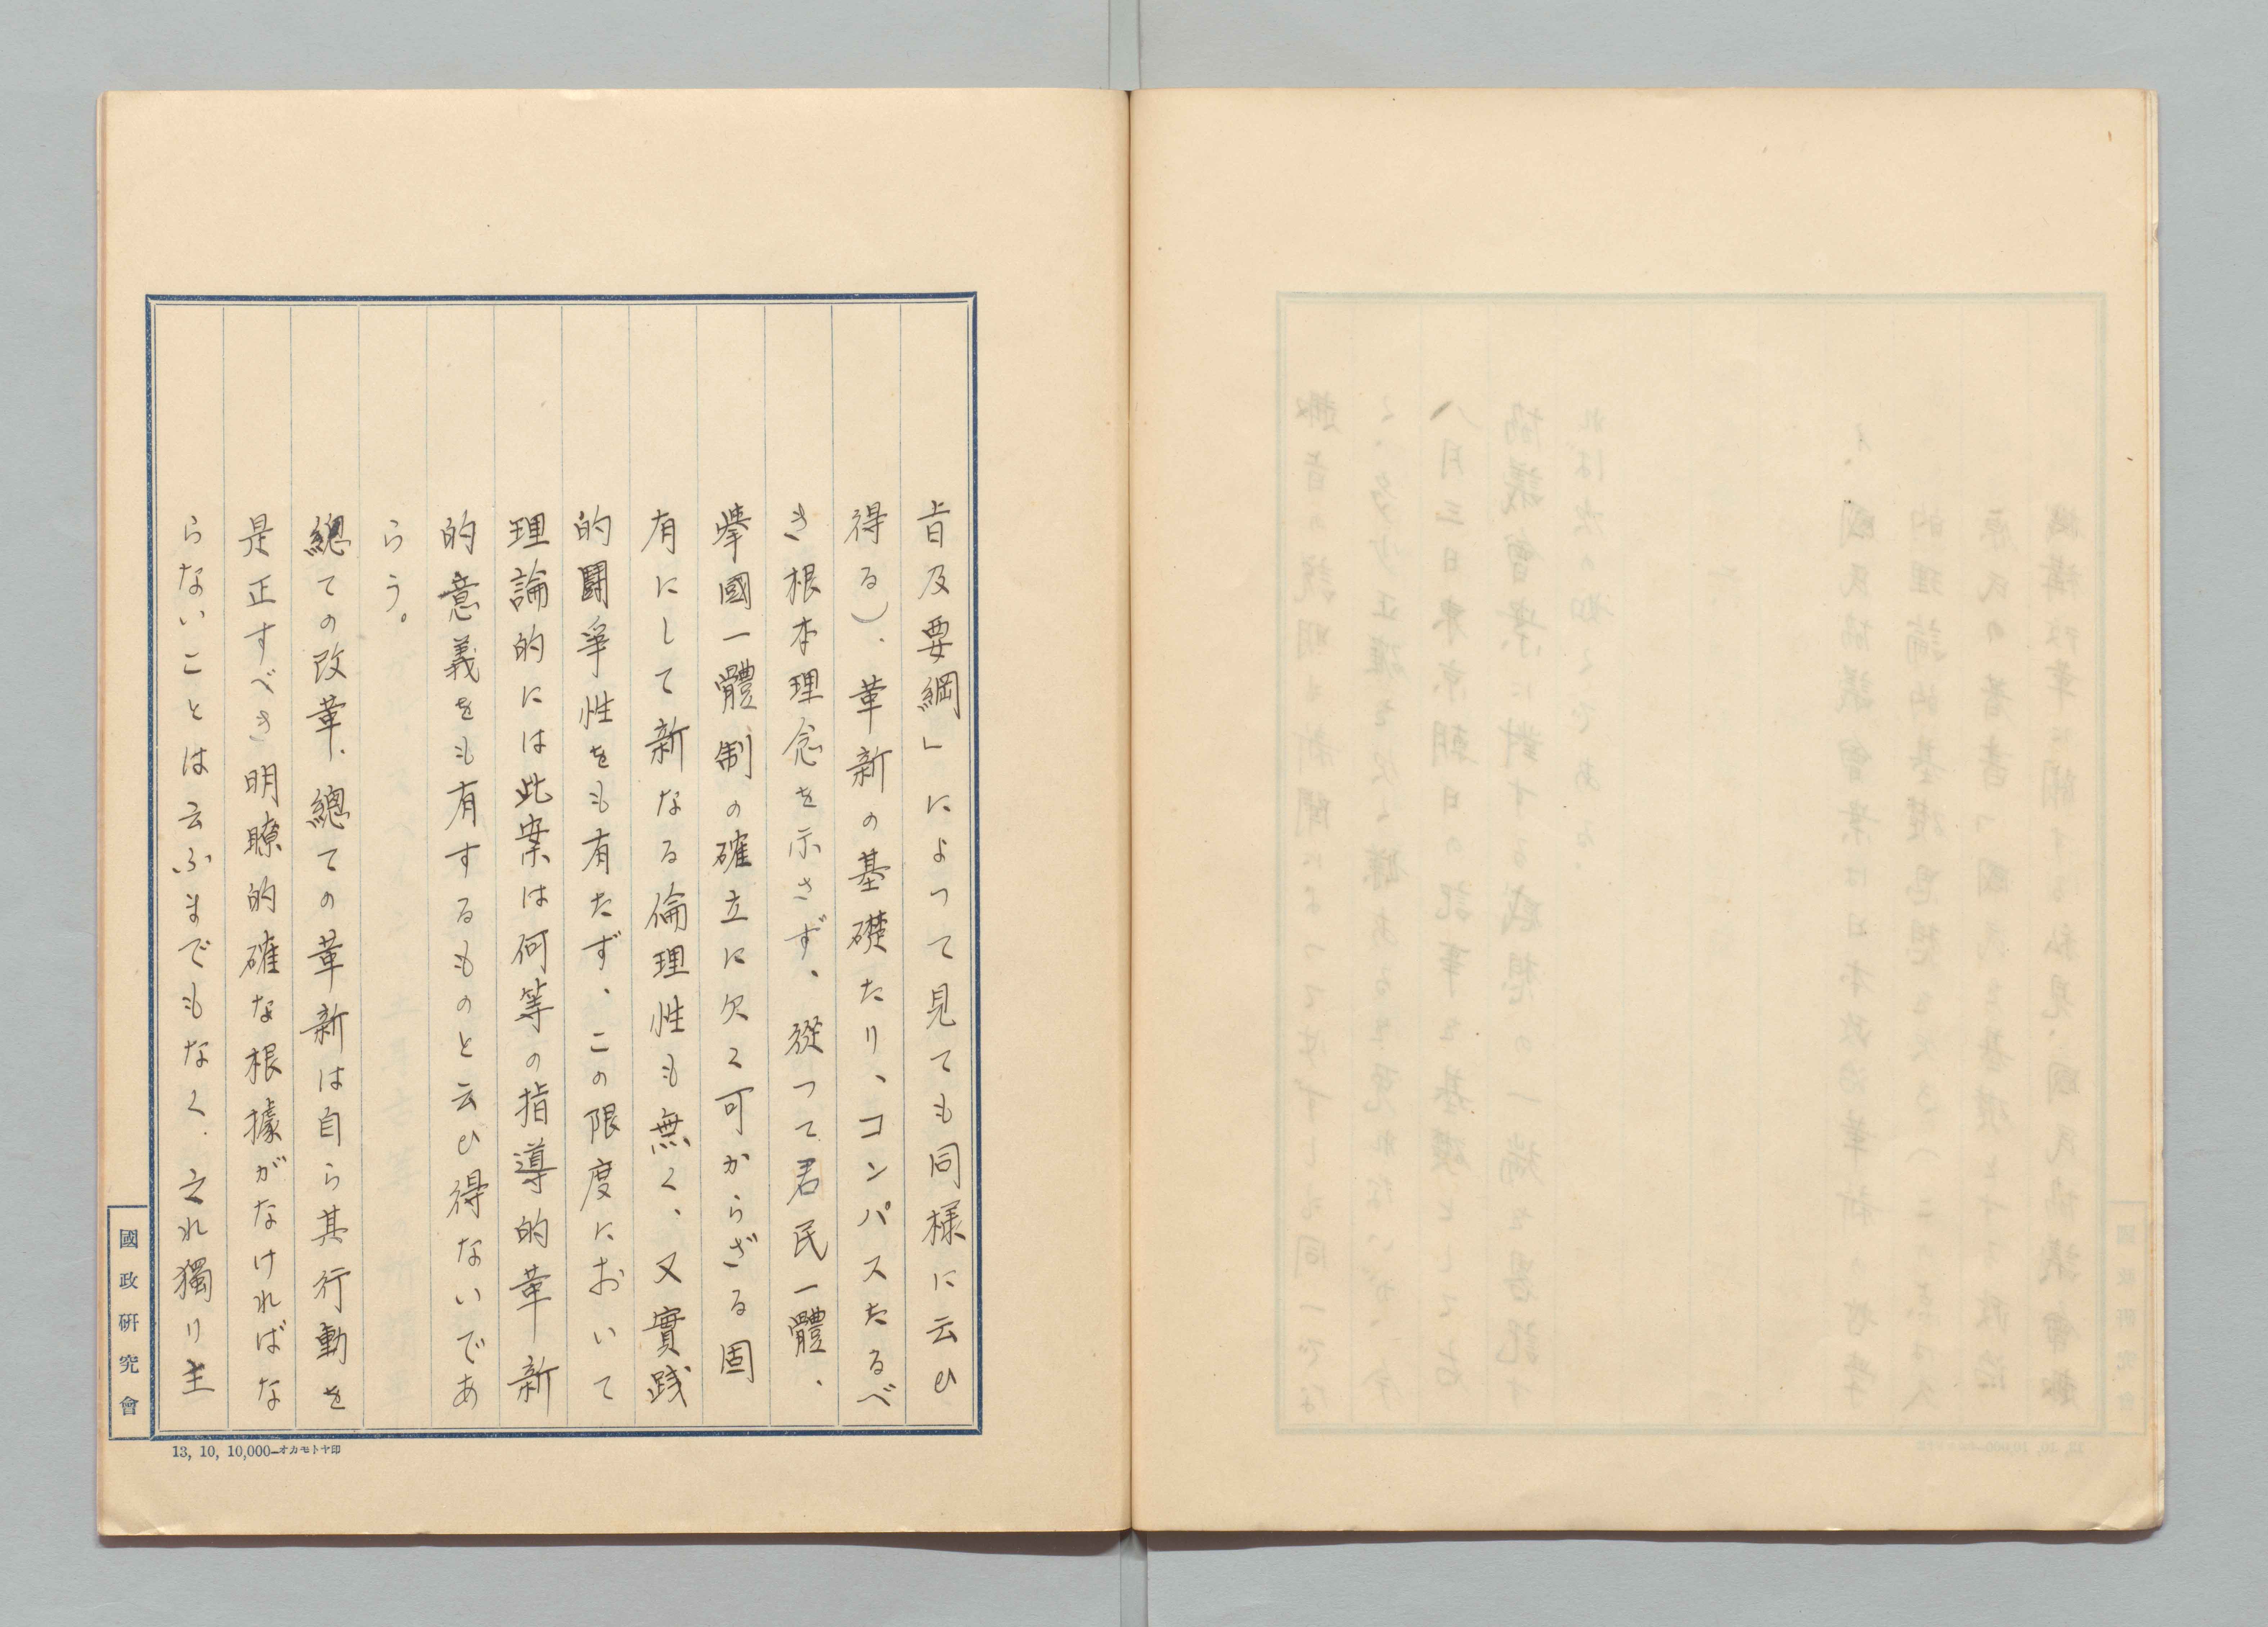 旨及要綱」によつて見ても同様に云ひ
得る)、革新の基礎たり、コンパスたるべ
き根本理念を示さず、從つて君民一體、
擧國一體制の確立に欠く可からざる固
有にして新なる倫理性も無く、又實践
的鬪爭性をも有たず、この限度において
理論的には此案は何等の指導的革新
的意義をも有するものと云ひ得ないであ
らう。
總ての改革、總ての革新は自ら其行動を
是正すべき明瞭的確な根據がなければな
らないことは云ふまでもなく、之れ獨り主
國政研究會
13, 10, 10,000—オカモトヤ印